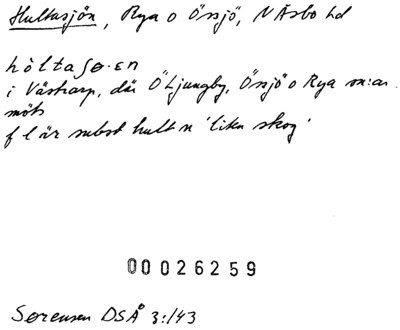 Hultasjön, Rya o Össjö, N Åsbo hd
hòltaʃɵ·ɛn
i Västrarp, där Ö Ljungby, Össjö o Rya sn:ar
möts
f l är subst hult n 'liten skog'
00026259
Sørensen DSÅ 3:143